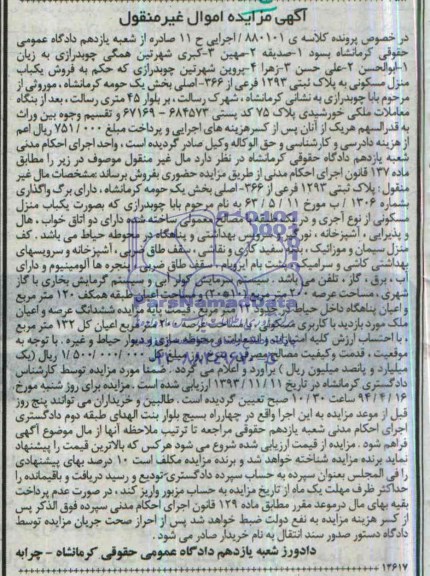 آگهی مزایده اموال غیر منقول
در خصوص پرونده کلاسه ی ۸۸۰۱۰۱ / اجرایی ح ۱۱ صادره از شعبه یازدهم دادگاه عمومی
حقوقی کرمانشاه بسود ۱-صدیقه ۲-مهین ۳-کبری شهرتین همگی چوبدرازی به زیان
۱-ابوالحسن ۲-علی حسن ۳-زهرا ۴-پروین شهرتین چوبدرازی که حکم به فروش یکباب
منزل مسکونی به پلاک ثبتی ۱۲۹۳ فرعی از ۳۶۶- اصلی بخش یک حومه کرمانشاه ، موروثی از
مرحوم بابا چوبدرازی به نشانی کرمانشاه ، شهرک رسالت ، بر بلوار ۴۵ متری رسالت ، بعد از بنگاه
معاملات ملکی خورشیدی پلاک ۷۵ کد پستی ۶۸۴۵۷۳ - ۶۷۱۶۹ و تقسیم وجوه بین وراث
به قدرالسهم هریک از آنان پس از کسر هزینه های اجرایی و پرداخت مبلغ ۷۵۱/۰۰۰ ریال اعم
از هزینه دادرسی و کارشناسی و حق الوکاله وکیل صادر گردیده است ، واحد اجرای احکام مدنی
شعبه یازدهم دادگاه حقوقی کرمانشاه در نظر دارد مال غیر منقول موصوف در زیر را مطابق
ماده ۱۳۷ قانون اجرای احکام مدنی از طریق مزایده حضوری بفروش برساند :مشخصات مال غیر
منقول : پلاک ثبتی ۱۲۹۳ فرعی از ۳۶۶- اصلی بخش یک حومه کرمانشاه ، دارای برگ واگذاری
بشماره ۱۳۰۶ / ب مورخ ۱۱ / ۵ / ۶۳ به نام مرحوم بابا چوبدرازی که بصورت یکباب منزل
مسکونی از نوع آجری و در یک طبقه با مصالح معمولی ساخته شده دارای دو اتاق خواب ، هال
و پذیرایی ، آشپزخانه ، سرویس بهداشتی و پناهگاه در محوطه حیاط می باشد . کف
منزل سیمان و موزائیک ، سفید کاری و نقاشی ، سقف طاق ضربی ، آشپزخانه و سرویسهای
بهداشتی کاشی و سرامیک ، پشت بام ایزوگام ، سقف طاق ضربی ، پنجره ها آلومینیوم و دارای
آب ، برق ، گاز ، تلفن می باشد . سیستم سرمایش کولر آبی و سیستم گرمایش بخاری با گاز
شهری . مساحت عرصه ۲۰۰ متر مربع ، مساحت اعیان طبقه همکف ۱۲۰ متر مربع
و اعیان پناهگاه داخل حیاط در حدود ۱۲ متر مربع . قیمت پایه مزایده ششدانگ عرصه و اعیان
ملک مورد بازدید با کاربری مسکونی با مساحت عرصه ۲۰۰ متر مربع اعیان کل ۱۳۲ متر مربع
، با احتساب ارزش کلیه امتیازات و انشعابات و محوطه سازی و دیوار حیاط و غیره . با توجه به
موقعیت ، قدمت وکیفیت مصالح مصرفی مبلغ کل ۱/۵۰۰/۰۰۰/۰۰۰ ریال (یک
میلیارد و پانصد میلیون ریال ) برآورد و اعلام می گردد . ضمنا مورد مزایده توسط کارشناس
دادگستری کرمانشاه در تاریخ ۱۱ / ۱۱ / ۱۳۹۳ ارزیابی شده است . مزایده برای روز شنبه مورخ
۹۴ / ۴ / ۱۶ ساعت ۱۰/۳۰ صبح تعیین گردیده است . طالبین و خریداران می توانند پنج روز
قبل از موعد مزایده به این اجرا واقع در چهارراه بسیج بلوار بنت الهدای طبقه دوم دادگستری
اجرای احکام مدنی شعبه یازدهم حقوقی مراجعه تا ترتیب ملاحظه آنها از مال موضوع آگهی
فراهم شود . مزایده از قیمت ارزیابی شده شروع می شود هر کس که بالاترین قیمت را پیشنهاد
نماید برنده مزایده شناخته خواهد شد و برنده مزایده مکلف است ۱۰ درصد بهای پیشنهادی
را فی المجلس بعنوان سپرده به حساب سپرده دادگستری تودیع و رسید دریافت و باقیمانده را
حداکثر ظرف مهلت یک ماه از تاریخ مزایده به حساب مزبور واریز کند ، در صورت عدم پرداخت
بقیه بهای مال درموعد مقرر مطابق ماده ۱۲۹ قانون اجرای احکام مدنی سپرده فوق الذکر پس
از کسر هزینه مزایده به نفع دولت ضبط خواهد شد پس از احراز صحت جریان مزایده توسط
دادگاه دستور صدور سند انتقال به نام خریدار صادر می شود .
دادورز شعبه یازدهم دادگاه عمومی حقوقی کرمانشاه - چرابه
۱۳۶۱۷